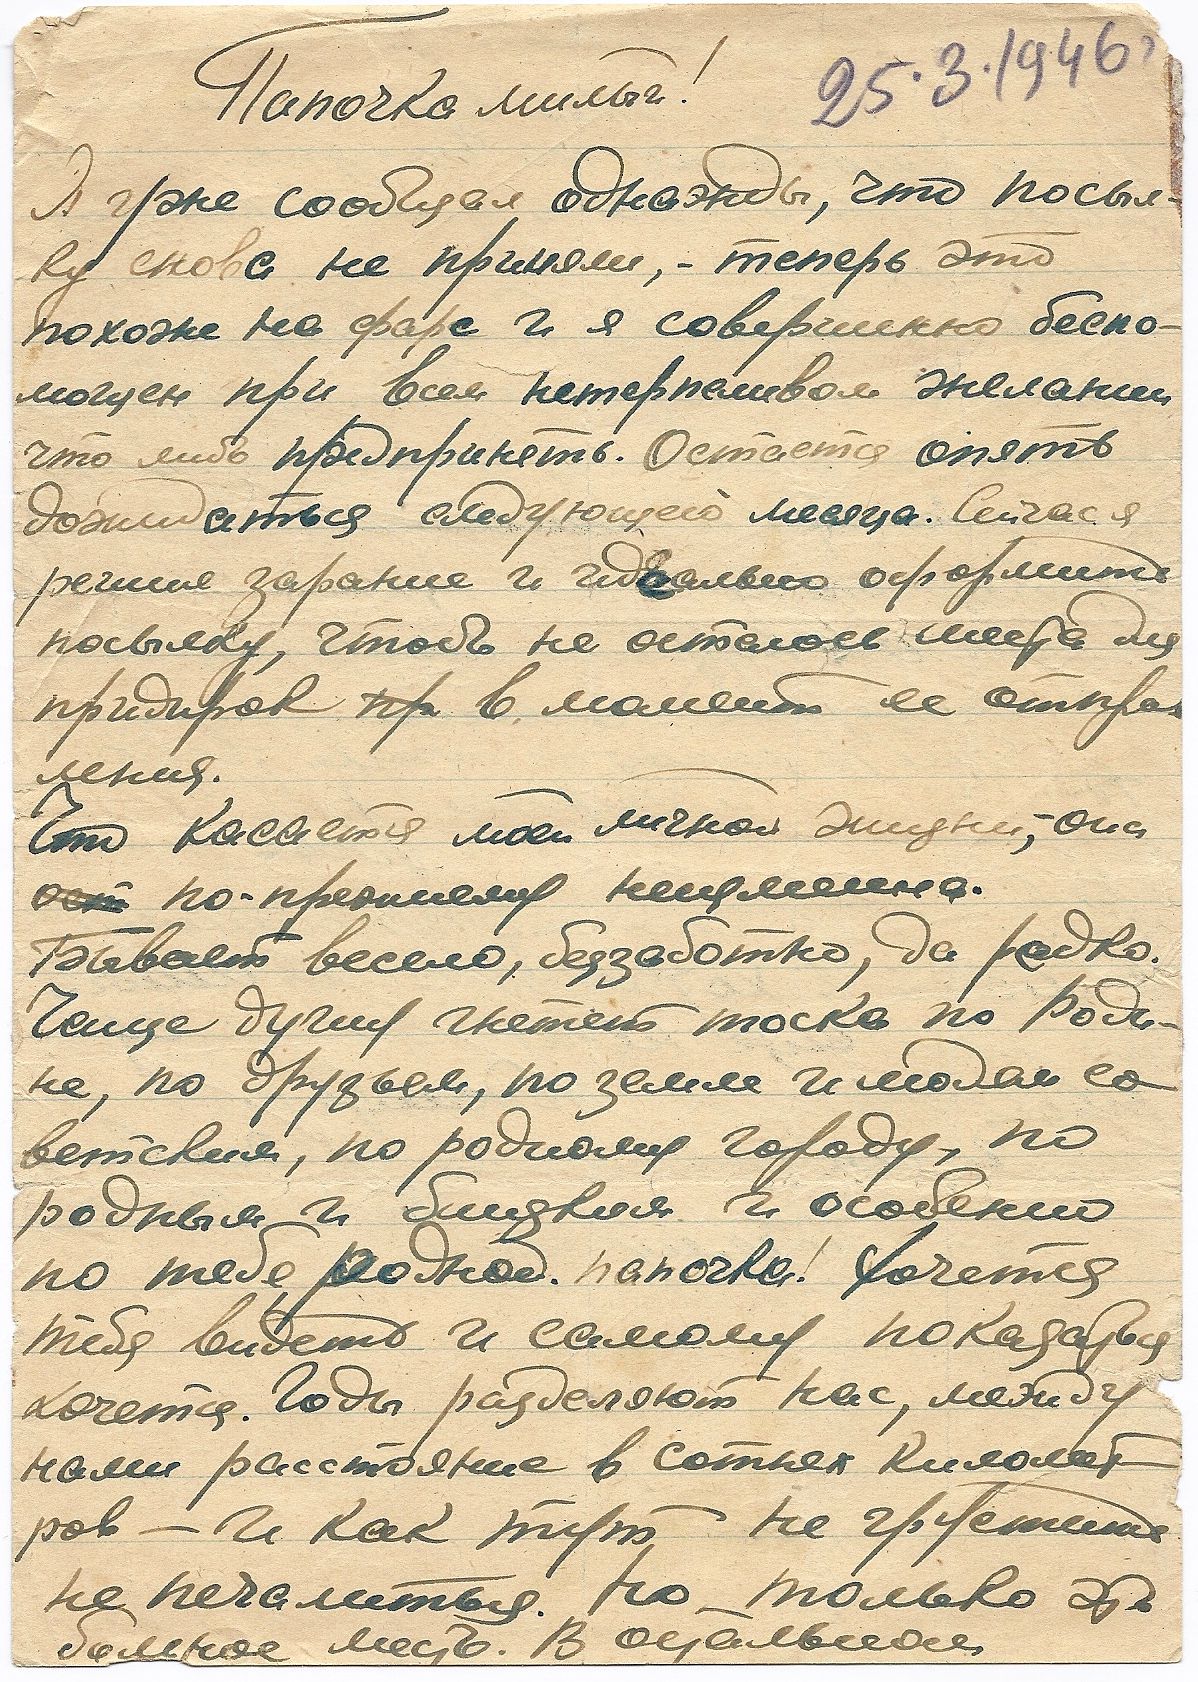 Папочка милый!
25.3.1946 г
Я уже сообщал однажды, что посыл-
ку снова не приняли, - теперь это
похоже на фарс и я совершенно беспо-
мощен при всем нетерпеливом желании
что либо предпринять. Остается опять
дожидаться следующего месяца. Сейчас я
решил заранее и идеально оформить
посылку, чтобы не осталось места для
придирок пр в момент ее отправ
ления.
Что касается моей личной жизни, - она
ост по-прежнему неизменна.
Бывает весело, беззаботно, да редко.
Чаще душу гнетет тоска по Роди-
не, по друзьям, по земле и людям со
ветским, по родному городу, по
родным и близким и особенно
по тебе, родной папочка! Хочется
тебя видеть и самому показаться
хочется. Годы разделяют нас, между
нами расстояние в сотнях километ
ров — и как тут не грустить
не печалиться. Но только это
больное место. В остальном